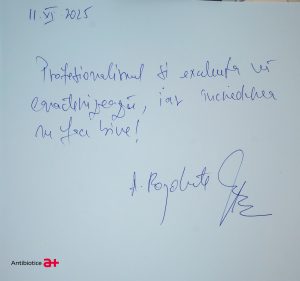 11. VI. 2025
Profesionalismul și excelența vă
caracterizează, iar încrederea
ne face bine!
A.
Antibiotice a+